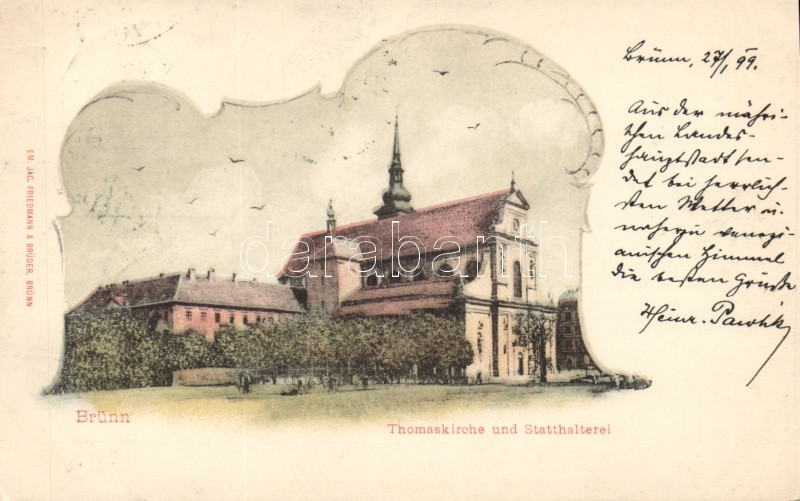 Brünn, 27/1 99.
Aus der mähri-
schen Landes-
hauptstadt sen-
det bei herrlich-
sten Wetter u.
nahezu venezi-
anischen Himmel
die besten Grüsse
Heinr.
EM. JAC. FRIEDMANN & BRÜDER, BRÜNN
darabanth
Brünn
Thomaskirche und Statthalterei